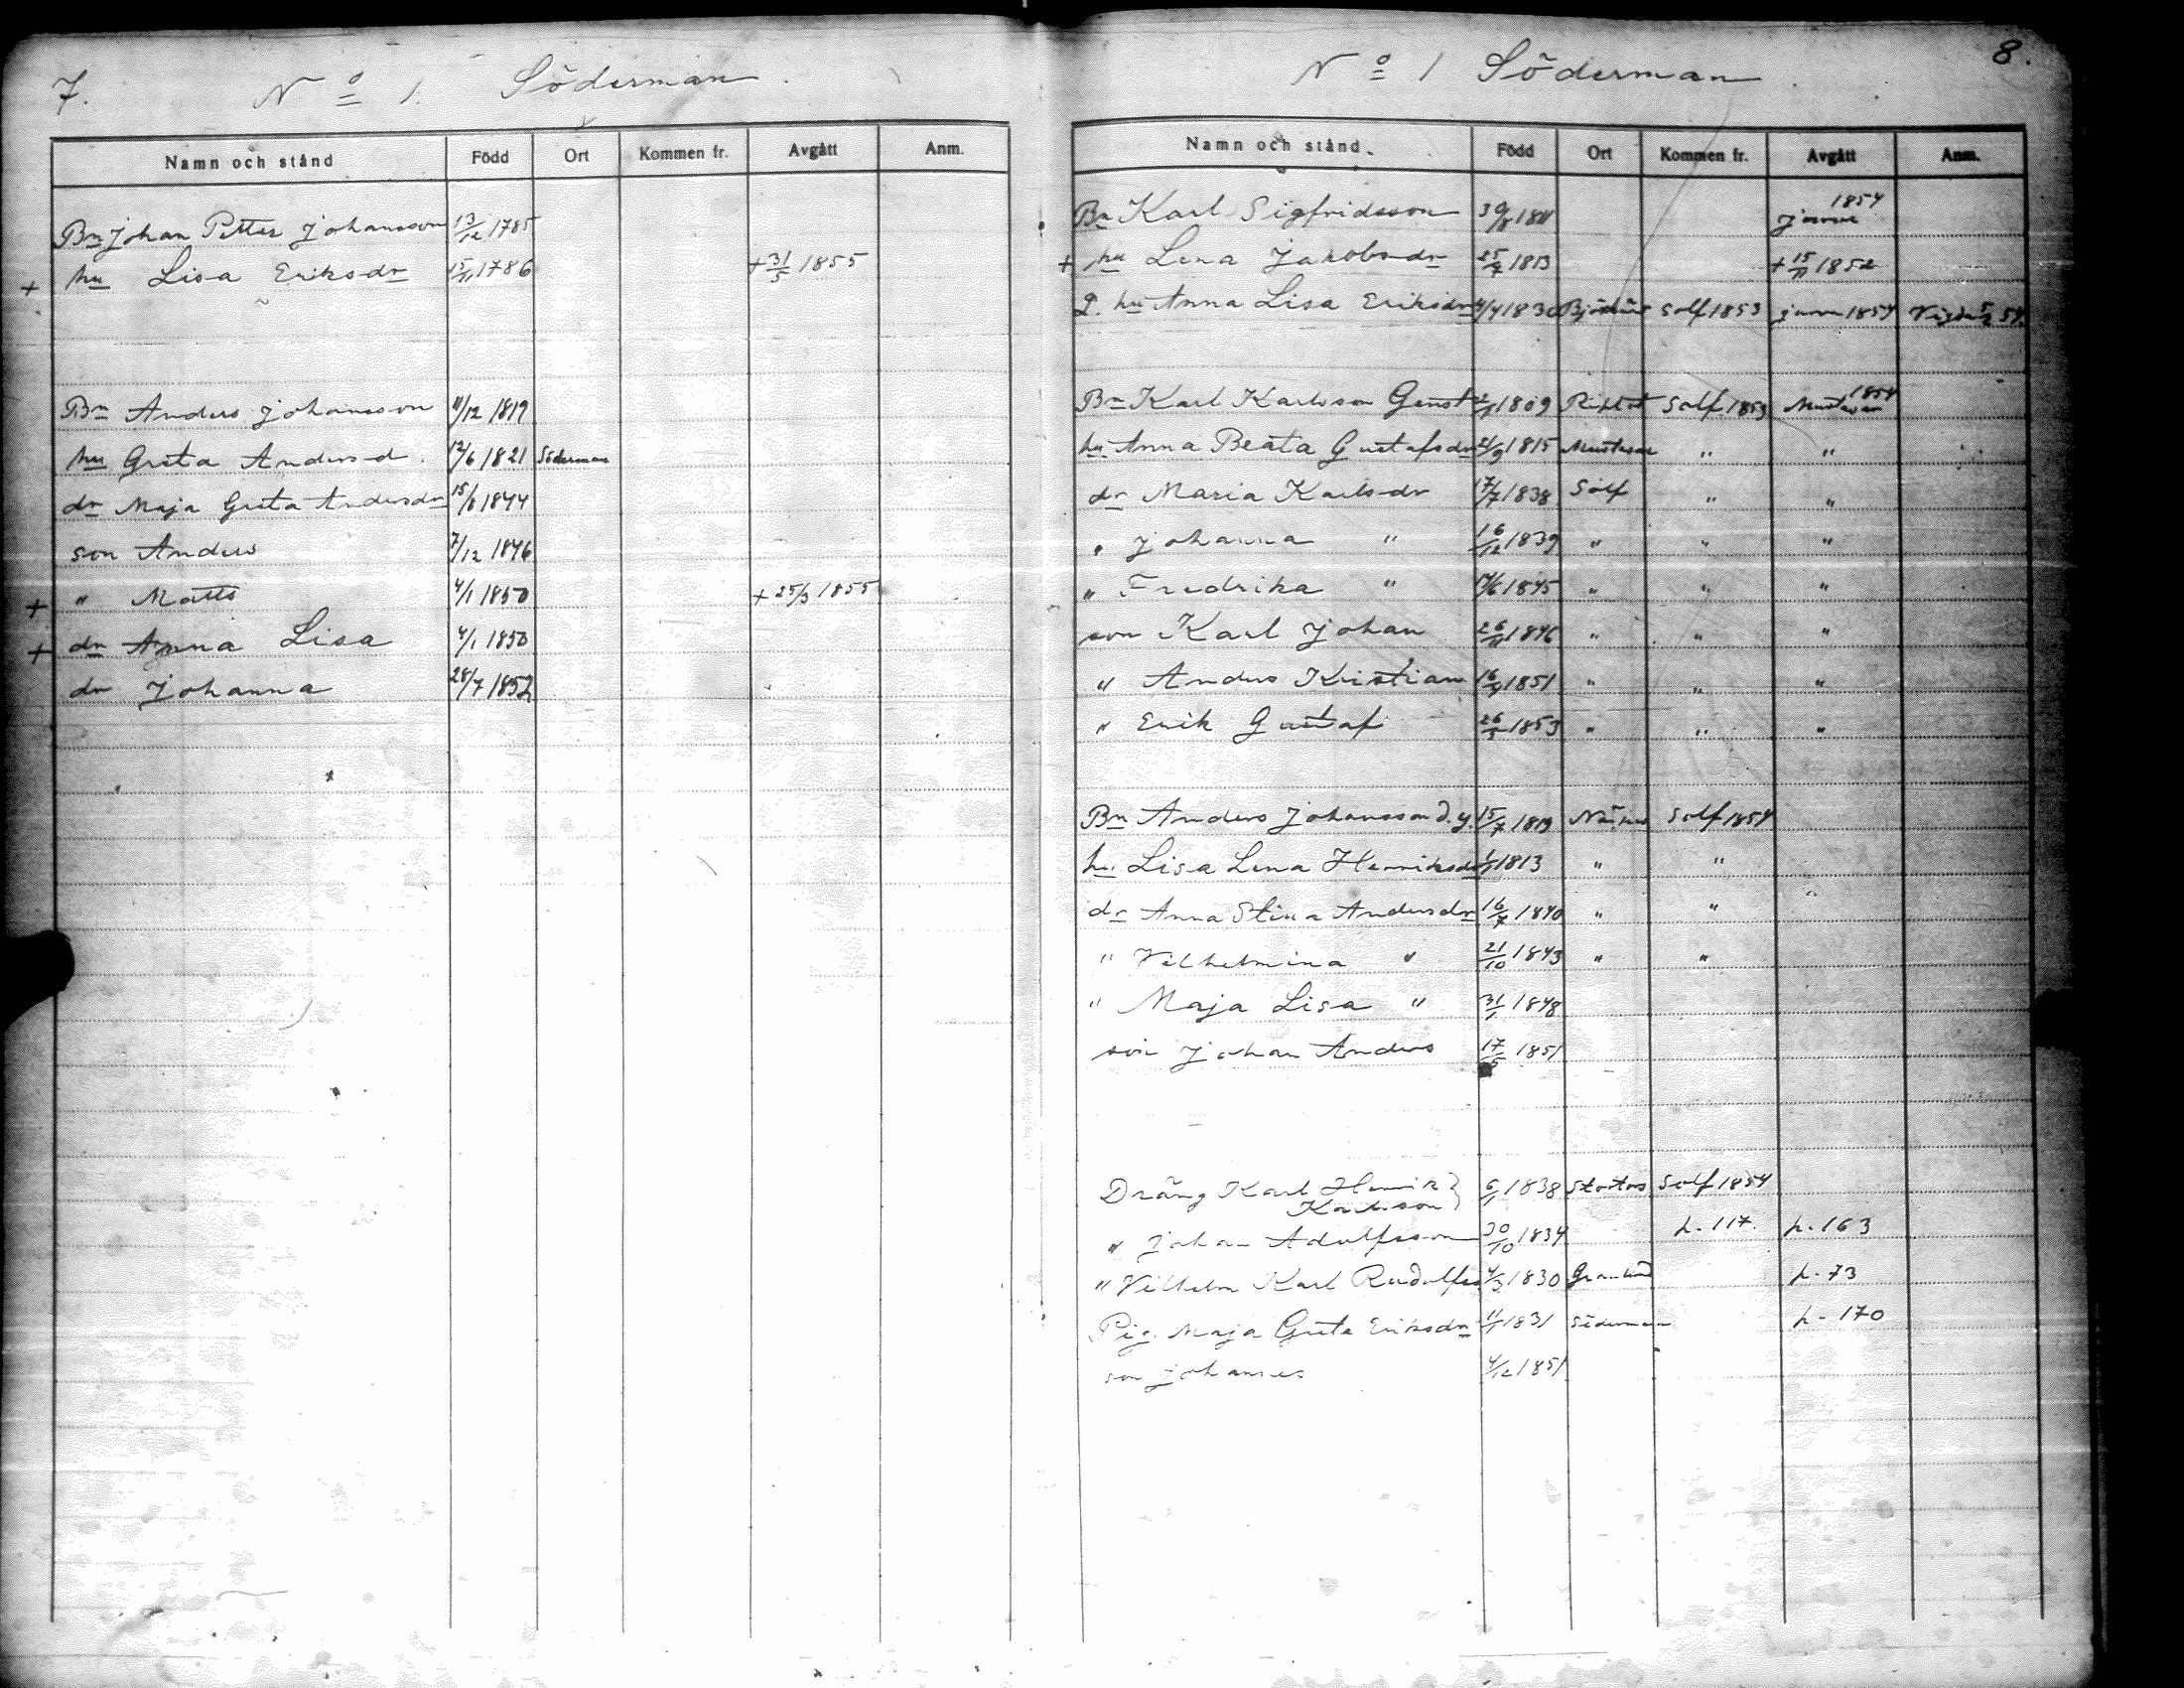 7.
No 1. Söderman
Namn och stånd Född Ort Kommen fr. Avgått Anm.
Bn Johan Petter Johansson 13/12 1785
+ hu Lisa Eriksdr 15/11 1786 + 31/5 1855
Bn Anders Johansson 11/12 1819
hu Greta Andersd. 12/6 1821 Söderman
dr Maja Greta Andersdr 15/8 1844
son Anders 7/12 1846
+ " Matts 4/1 1850 + 25/3 1855
+ dr Anna Lisa 4/1 1850
dr Johanna 28/7 1852
8.
No 1 Söderman
Namn och stånd. Född Ort Kommen fr. Avgått Anm.
Bn Karl Sigfridsson 1854
+ hu Lena Jakobsdr 25/7 1813 + 15/11 1852
2. hu Anna Lisa Eriksdr 4/4 1830 Solf 1853 1854 Vigda 54.
Bn Karl Karlsson Gunst 1809 Solf 1853 Mustasar 1854
hu Anna Beata Gustafsdr 21/9 1815 Mustasar " "
dr Maria Karlsdr 17/7 1838 Solf " "
" Johanna " 16/12 1839 " " "
" Fredrika " 1845 " " "
son Karl Johan 26/11 1846 " " "
" Anders Kristian 16/9 1851 " " "
" Erik Gustaf 1853 " " "
Bn Anders Johansson d.y. 15/7 1819 Solf 1854
hu Lisa Lena Henriksdr 1813 " "
dr Anna Stina Andersdr 16/7 1840 " "
" Vilhelmina " 21/10 1843 " "
" Maja Lisa " 31/1 1848
son Johan Anders 17/5 1851
Dräng Karl Henrik 6/1 1838 Solf 1854
Karlsson
" Johan Adolfsson 30/10 1834 p. 117. p. 163
" Vilhelm Karl Rudolfss 4/3 1830 p. 73
Pig. Maja Greta Eriksdr 11/1 1831 Söderman p. 170
son Johannes 4/12 1851